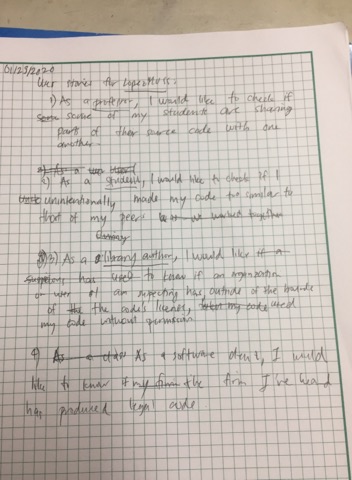 01/23/2020
User stories for CopesMoss:
1) As a professor, I would like to check if
some some of my students are sharing
parts of their source code with one
another.
2) As a user
2) As a student, I would like to check if I
unintentionally made my code too similar to
that of my peer we worked together
3) As a library author, I would like if a
has used to know if an organization
or user I am suspecting has, outside of the bounds
of the the code's license, my code used
my code without permission
4) As a As a software client, I would
like to know if my firm the firm I've heard
has produced legal code